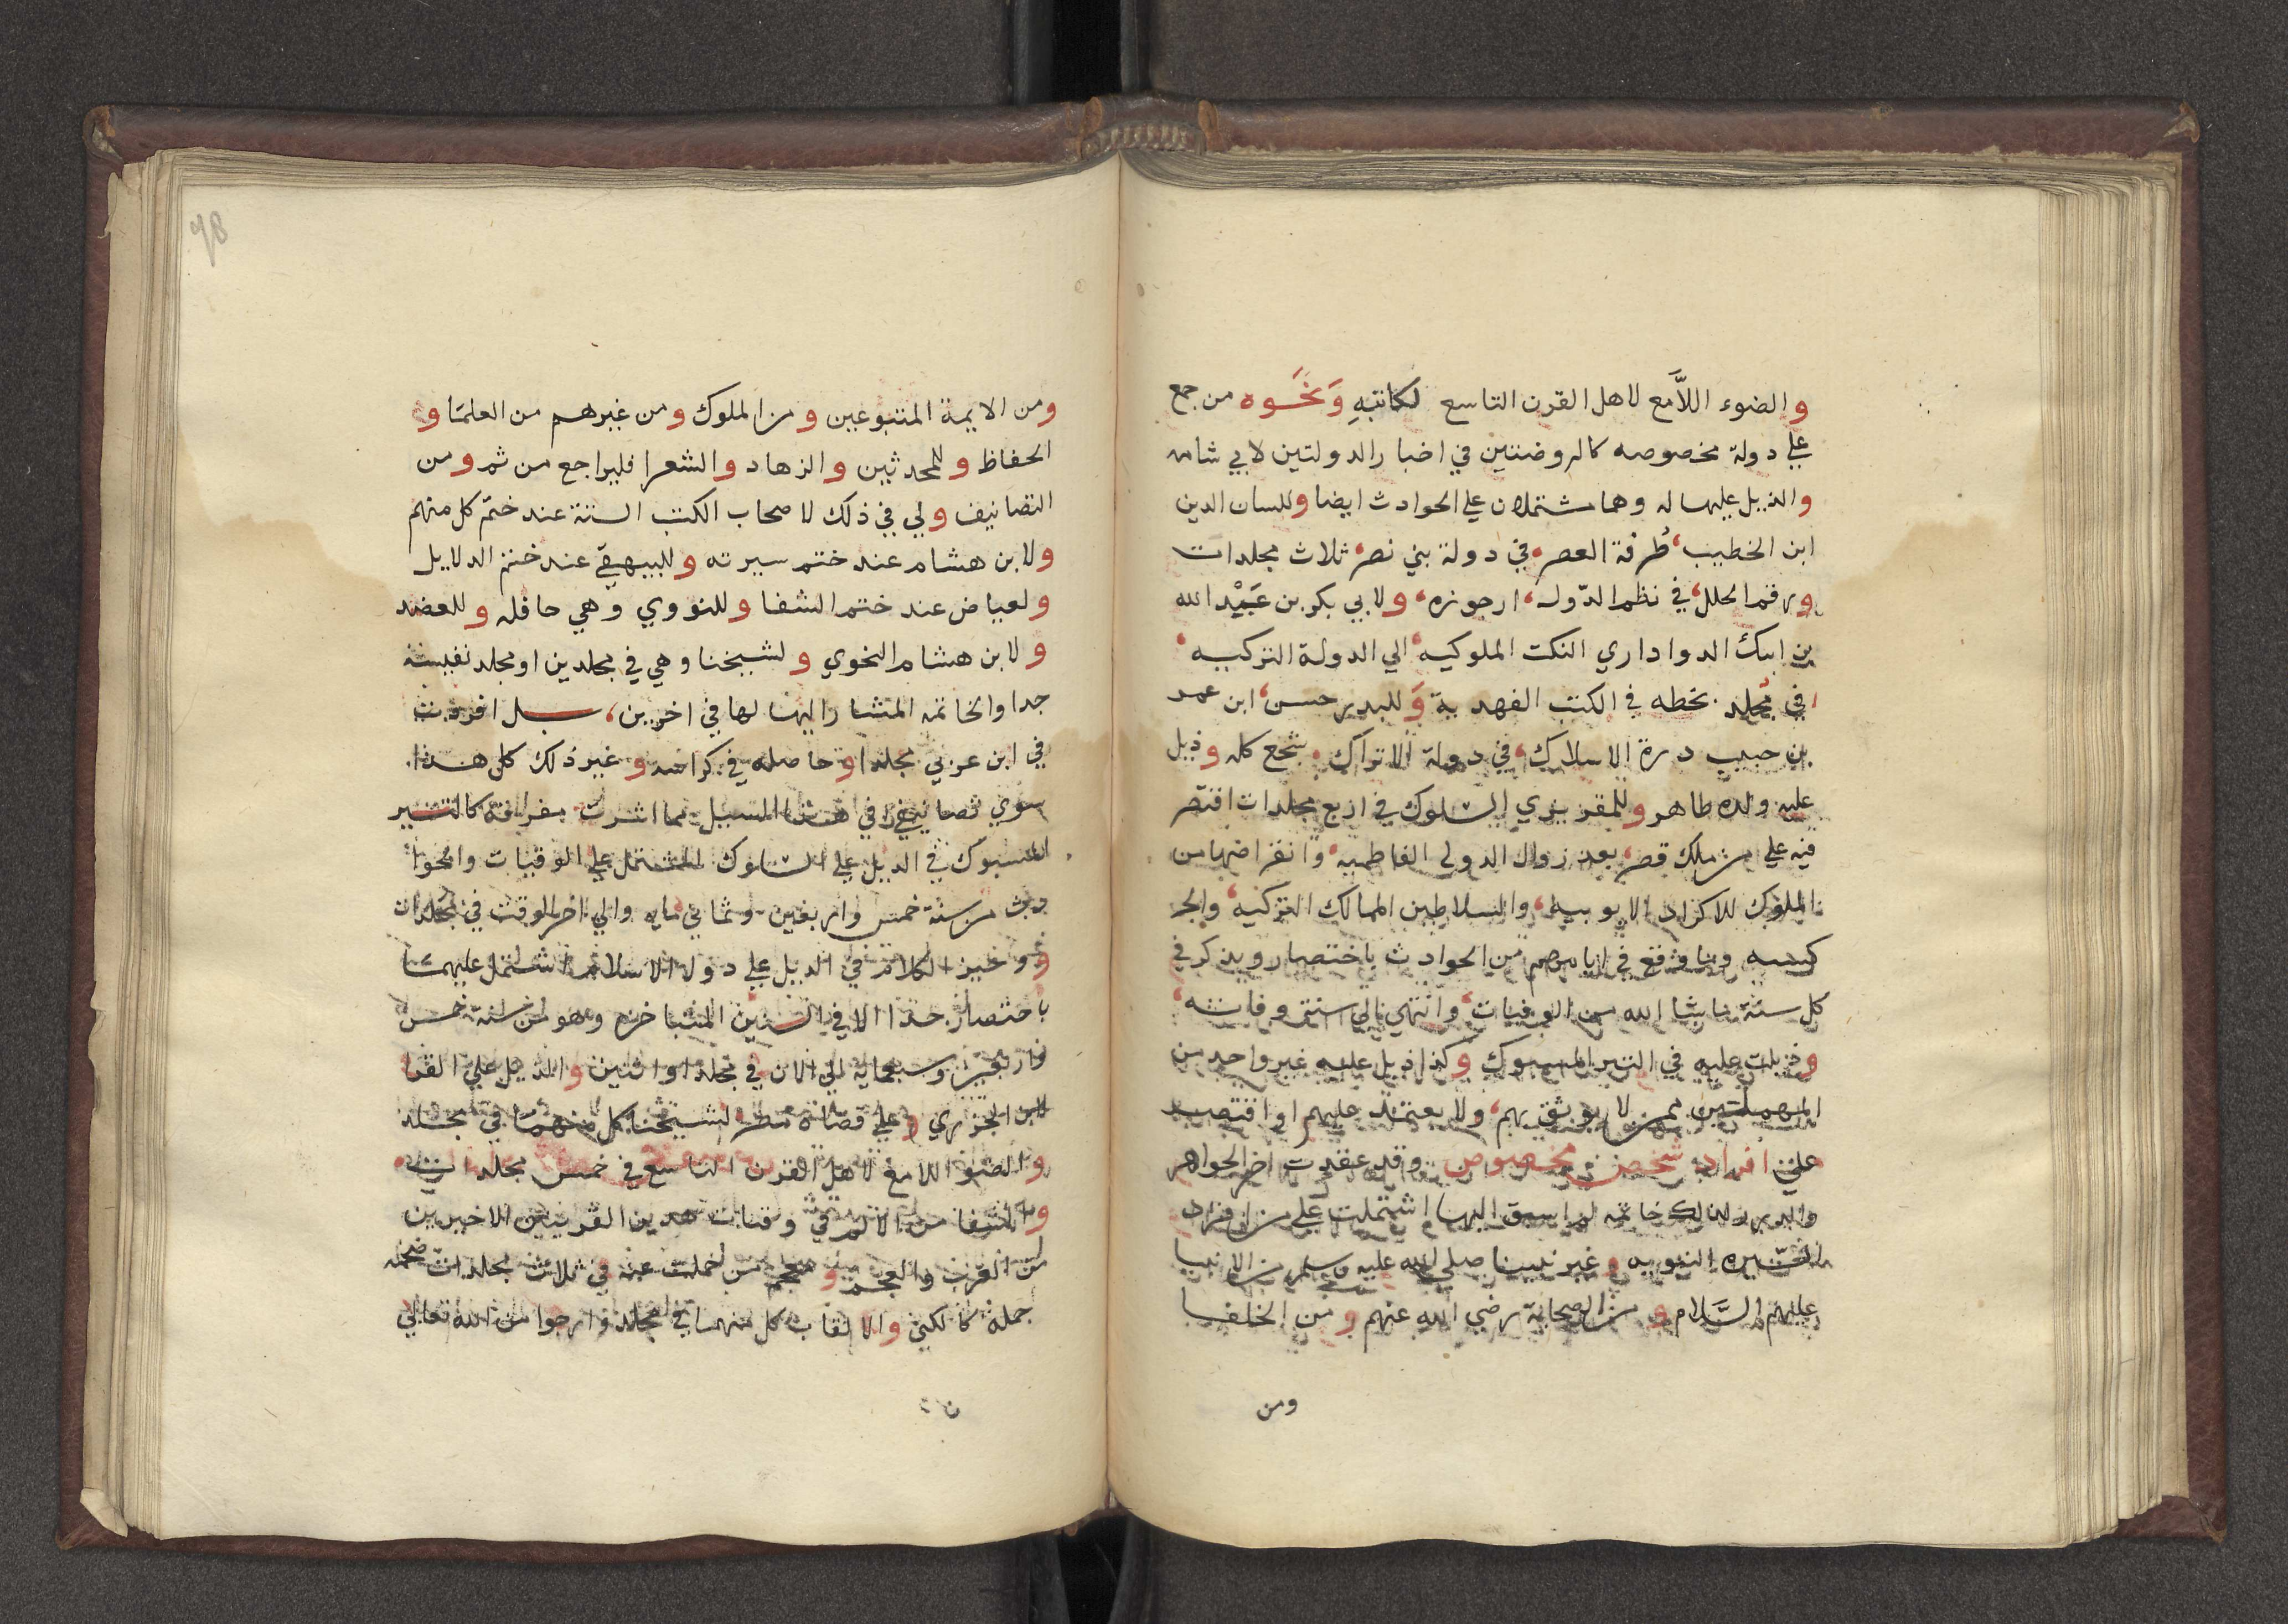 والضوء اللَّامع لاهل القرن التاسع لكاتبهِ وَنَحْوه من جمع
علي دولة مخصوصه كالروضتين في اخبار الدولتين لابي شامه
والذيل عليها له وهما مشتملان علي الحوادث ايضا وللسان الدين
ابن الخطيب، طُرفة العصر، في دولة بني نصر، ثلاث مجلدات
ورقم الحلل، في نظم الدّول، ارجوزه، ولابي بكر بن عَبْد الله
بن ايبك الدواداري النكت الملوكيه، الي الدولة التركيه،
في مُجلد بخطه في الكتب الفهدية وَللبدر حسن، ابن عمر
بن حبيب درة الاسلاك، في دولة الاتراك، سجع كله وذيل
عليه ولده طاهر وللمقريزي السلوك في اربع مجلدات اقتصر
فيه علي من ملك مصر، بعد زوال الدولة الفاطميه، وانقراضها من
الملوك للاكراد الايوبيه، والسلاطين المماليك التركيه، والجر
كسيه وما وقع في ايامهم من الحوادث باختصار ويذكر في
كل سنة ما شا الله من الوفيات، وانتهي الي سنة وفاته،
وذيلت عليه في التبر المسبوك وكذا ذيل عليه غير واحد من
المهملين ممن لا يوثق بهم، ولا يعتمد عليهم او اقتصر
علي افراد شخص مخصوص وقد عقدت اخر الجواهر
والدرر لذلك خاتمه لم اسبق اليها اشتملت علي من افرد
السّيره النبويه وغير نبينا صلي الله عليه وسلم من الانبيا
عليهم السَّلام ومن الصحابة رضي الله عنهم ومن الخلفا
ومن
ومن الايمة المتبوعين ومن الملوك ومن غيرهم من العلما و
الحفاظ والمحدثين والزهاد والشعرا فليراجع من ثم ومن
التصانيف ولي في ذلك لاصحاب الكتب الستة عند ختم كل منهم
ولابن هشام عند ختم سيرته وللبيهقي عند ختم الدلايل
ولعياض عند ختم الشفا وللنووي وهي حافله وللعضد
ولابن هشام النحوي ولشيخنا وهي في مجلدين او مجلد نفيسة
جدا والخاتمه المشار اليها لها في اخرين، بل افردت
في ابن عربي مجلدا وحاصله في كراسه وغير ذلك كل هذا
سوي تصانيفي في هذا السبيل مما اشرت كالتبر
المسبوك في الذيل علي السلوك المشتمل علي الوفيات والحوا
دث من سنة خمس واربعين وثماني مايه والي اخر الوقت في مجلدات
ووجيز الكلام في الذيل علي دول الاسلام اشتمل عليهما
باختصار جدا الا في السنين المتاخره وهو من سنة خمس
واربعين وسبعماية الي الان في مجلد او اثنين والذيل علي القرا
لابن الجزري وعلي قضاة مصر لشيخنا كل منهما في مجلد
والضوء اللامع لاهل القرن التاسع في خمس مجلدات
والشفا من الالم في وفيات هذين القرنين الاخيرين
من العرب والعجم ومعجم من حملت عنه في ثلاث مجلدات ضخمه
جملة كالكني والالقاب كل منهما في مجلد وارجوا من الله تعالي
98